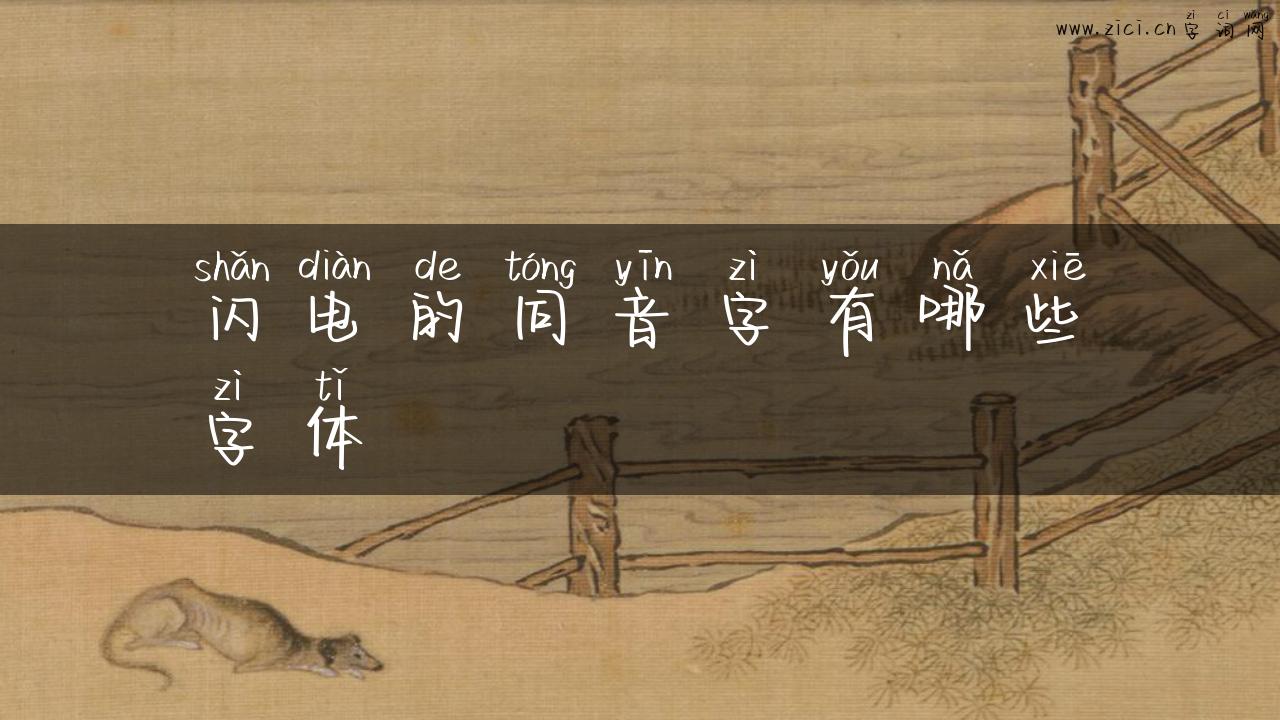 zì cí wǎng
www.zici.cn 字词网
shǎn diàn de tóng yīn zì yǒu nǎ xiē
闪电的同音字有哪些
zì tǐ
字体